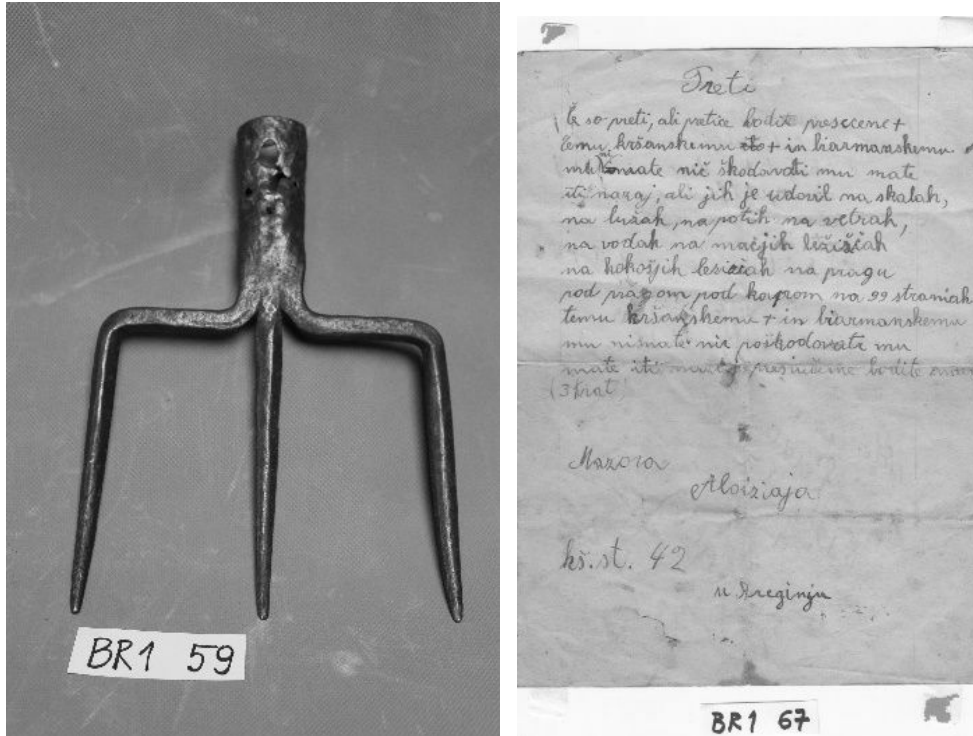 BR1 59
Treti
Če so preti, ali pretice bodite presecene +
temu kršanskemu + in biarmanskemu
nič škodovati mu mate
iti nazaj, ali jih je udovil na skalah,
na lužah, na potih na vetrah,
na vodah na mačjih
na kokošjih na pragu
pod pragom pod kapom na 99 straniah
temu kršanskemu + in biarmanskemu
mu nimate nič poškodovati mu
mate iti bodite
(3 krat
Mazora
Aloiziaja
hš. št. 42
u Breginju
BR1 67